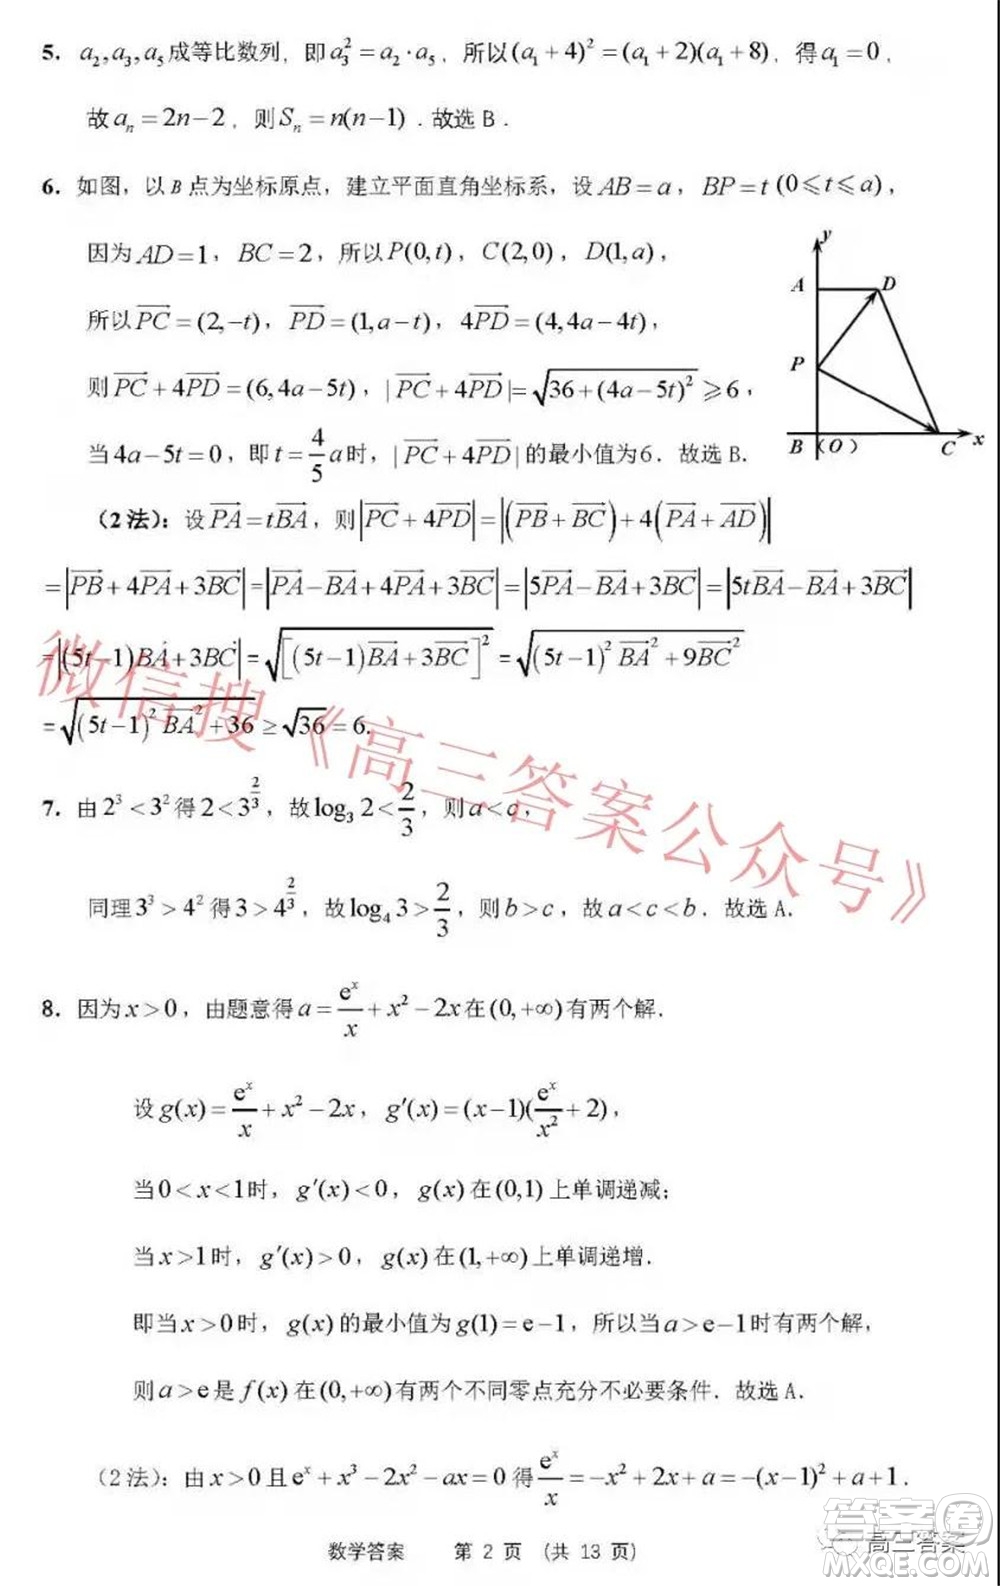 5. a₂,a₃,a₅成等比数列, 即a₃²=a₂·a₅, 所以(a₁+4)²=(a₁+2)(a₁+8), 得a₁=0,
故aₙ=2n-2, 则Sₙ=n(n-1). 故选B.
6. 如图, 以B点为坐标原点, 建立平面直角坐标系, 设AB=a, BP=t(0⩽t⩽a),
因为AD=1, BC=2, 所以P(0,t), C(2,0), D(1,a),
所以\overrightarrow{PC}=(2,-t), \overrightarrow{PD}=(1,a-t), 4\overrightarrow{PD}=(4,4a-4t),
则\overrightarrow{PC}+4\overrightarrow{PD}=(6,4a-5t), |\overrightarrow{PC}+4\overrightarrow{PD}|=\sqrt{36+(4a-5t)²}⩾6,
当4a-5t=0, 即t=\frac{4}{5}a时, |\overrightarrow{PC}+4\overrightarrow{PD}|的最小值为6. 故选B.
y
A D
P
B (O) C x
(2法): 设\overrightarrow{PA}=t\overrightarrow{BA}, 则|\overrightarrow{PC}+4\overrightarrow{PD}|=|(\overrightarrow{PB}+\overrightarrow{BC})+4(\overrightarrow{PA}+\overrightarrow{AD})|
=|\overrightarrow{PB}+4\overrightarrow{PA}+3\overrightarrow{BC}|=|\overrightarrow{PA}-\overrightarrow{BA}+4\overrightarrow{PA}+3\overrightarrow{BC}|=|5\overrightarrow{PA}-\overrightarrow{BA}+3\overrightarrow{BC}|=|5t\overrightarrow{BA}-\overrightarrow{BA}+3\overrightarrow{BC}|
=|(5t-1)\overrightarrow{BA}+3\overrightarrow{BC}|=\sqrt{[(5t-1)\overrightarrow{BA}+3\overrightarrow{BC}]²}=\sqrt{(5t-1)²\overrightarrow{BA}²+9\overrightarrow{BC}²}
=\sqrt{(5t-1)²\overrightarrow{BA}²+36}≥\sqrt{36}=6.
微信搜《高三答案公众号》
7. 由2³<3²得2<3^{\frac{2}{3}}, 故log₃2<\frac{2}{3}, 则a<c,
同理3³>4²得3>4^{\frac{2}{3}}, 故log₄3>\frac{2}{3}, 则b>c, 故a<c<b. 故选A.
8. 因为x>0, 由题意得a=\frac{eˣ}{x}+x²-2x在(0,+∞)有两个解.
设g(x)=\frac{eˣ}{x}+x²-2x, g′(x)=(x-1)(\frac{eˣ}{x²}+2),
当0<x<1时, g′(x)<0, g(x)在(0,1)上单调递减;
当x>1时, g′(x)>0, g(x)在(1,+∞)上单调递增.
即当x>0时, g(x)的最小值为g(1)=e-1, 所以当a>e-1时有两个解,
则a>e是f(x)在(0,+∞)有两个不同零点充分不必要条件. 故选A.
(2法): 由x>0且eˣ+x³-2x²-ax=0得\frac{eˣ}{x}=-x²+2x+a=-(x-1)²+a+1.
数学答案 第 2 页 (共 13 页)
高三答案
答案圈
MXQE.COM